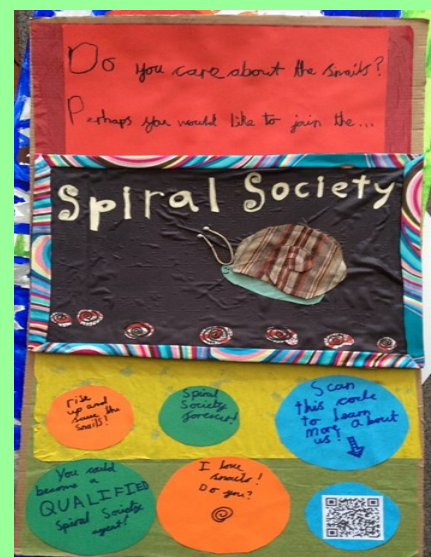 Do you care about the snails?
Perhaps you would like to join the...
Spiral Society
rise
up and
save the
snails!
Spiral
Society
forever!
Scan
this code
to learn
more about
us!
You could
become a
QUALIFIED
Spiral Society
agent!
I love
snails!
Do you?